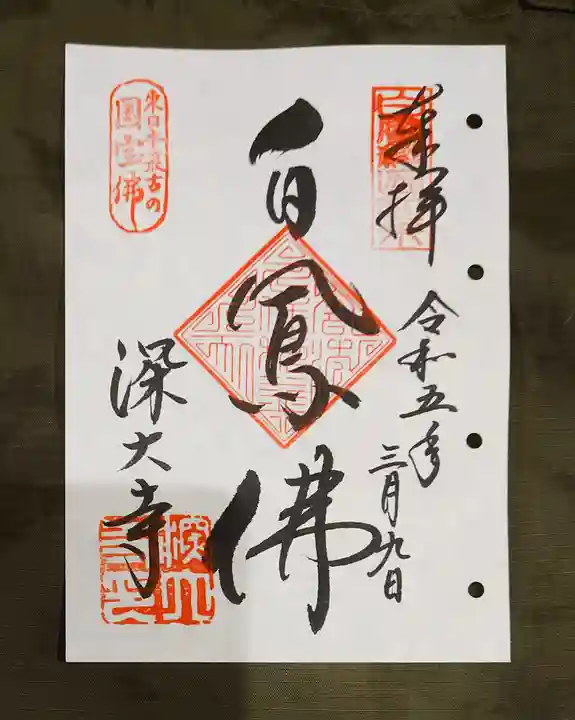 奉拝
令和五年
三月九日
白鳳佛
東日本最古の
國宝佛
深大寺